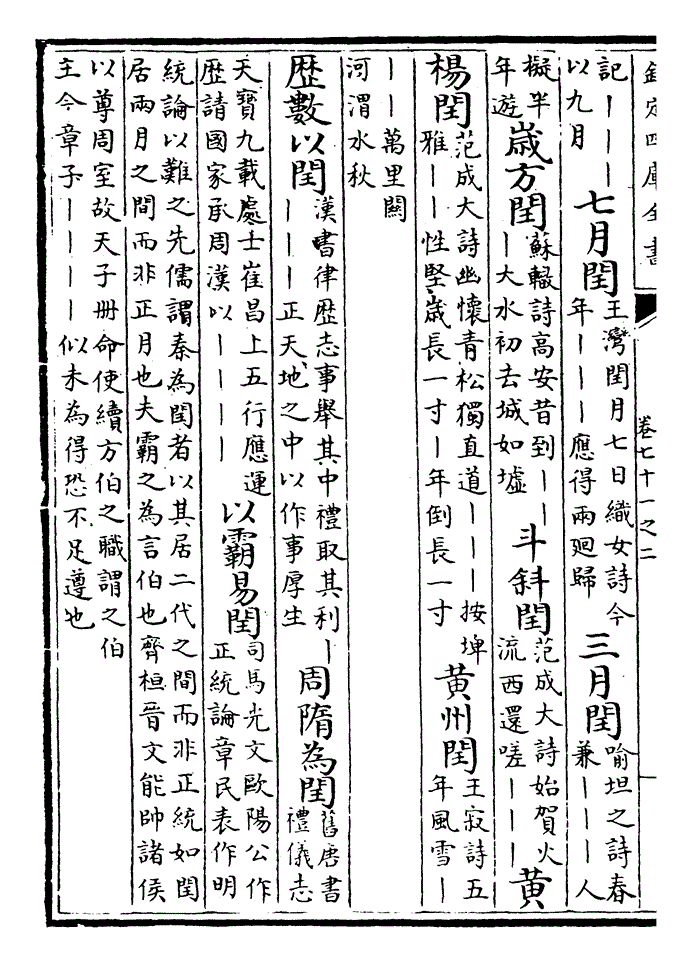 欽定四庫全書 卷七十一之二
記｜｜｜以九月 七月閏 王灣閏月七日織女詩今年｜｜｜應得兩廻歸 三月閏 喻坦之詩春兼｜｜｜人
擬半年遊 歲方閏 蘇轍詩高安昔到｜｜｜大水初去城如墟 斗斜閏 范成大詩始賀火流西還嗟｜｜｜ 黃
楊閏 范成大詩幽懷青松獨直道｜｜｜按埤雅｜｜性堅歲長一寸｜年倒長一寸 黃州閏 王寂詩五年風雪｜
｜｜萬里闗河渭水秋
歴數以閏 漢書律歴志事舉其中禮取其利｜｜｜｜正天地之中以作事厚生 周隋為閏 舊唐書禮儀志
天寶九載處士崔昌上五行應運歴請國家承周漢以｜｜｜｜ 以霸易閏 司馬光文歐陽公作正統論章民表作明
統論以難之先儒謂秦為閏者以其居二代之間而非正統如閏居兩月之間而非正月也夫霸之為言伯也齊桓晉文能帥諸侯
以尊周室故天子册命使續方伯之職謂之伯主今章子｜｜｜｜似未為得恐不足遵也